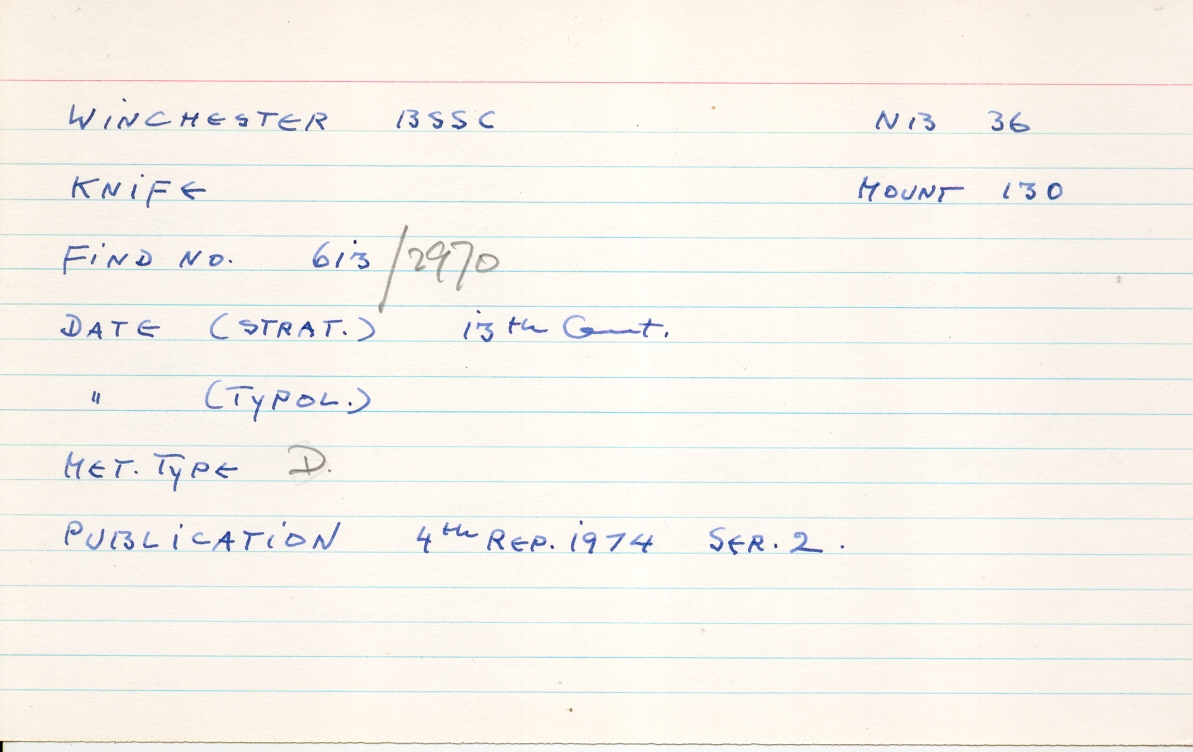 WINCHESTER BSSC NB 36
KNIFE MOUNT 130
FIND NO. 613/2970
DATE (STRAT.) 13th Cent.
" (TYPOL.)
MET. TYPE D.
PUBLICATION 4th REP. 1974 SER. 2.